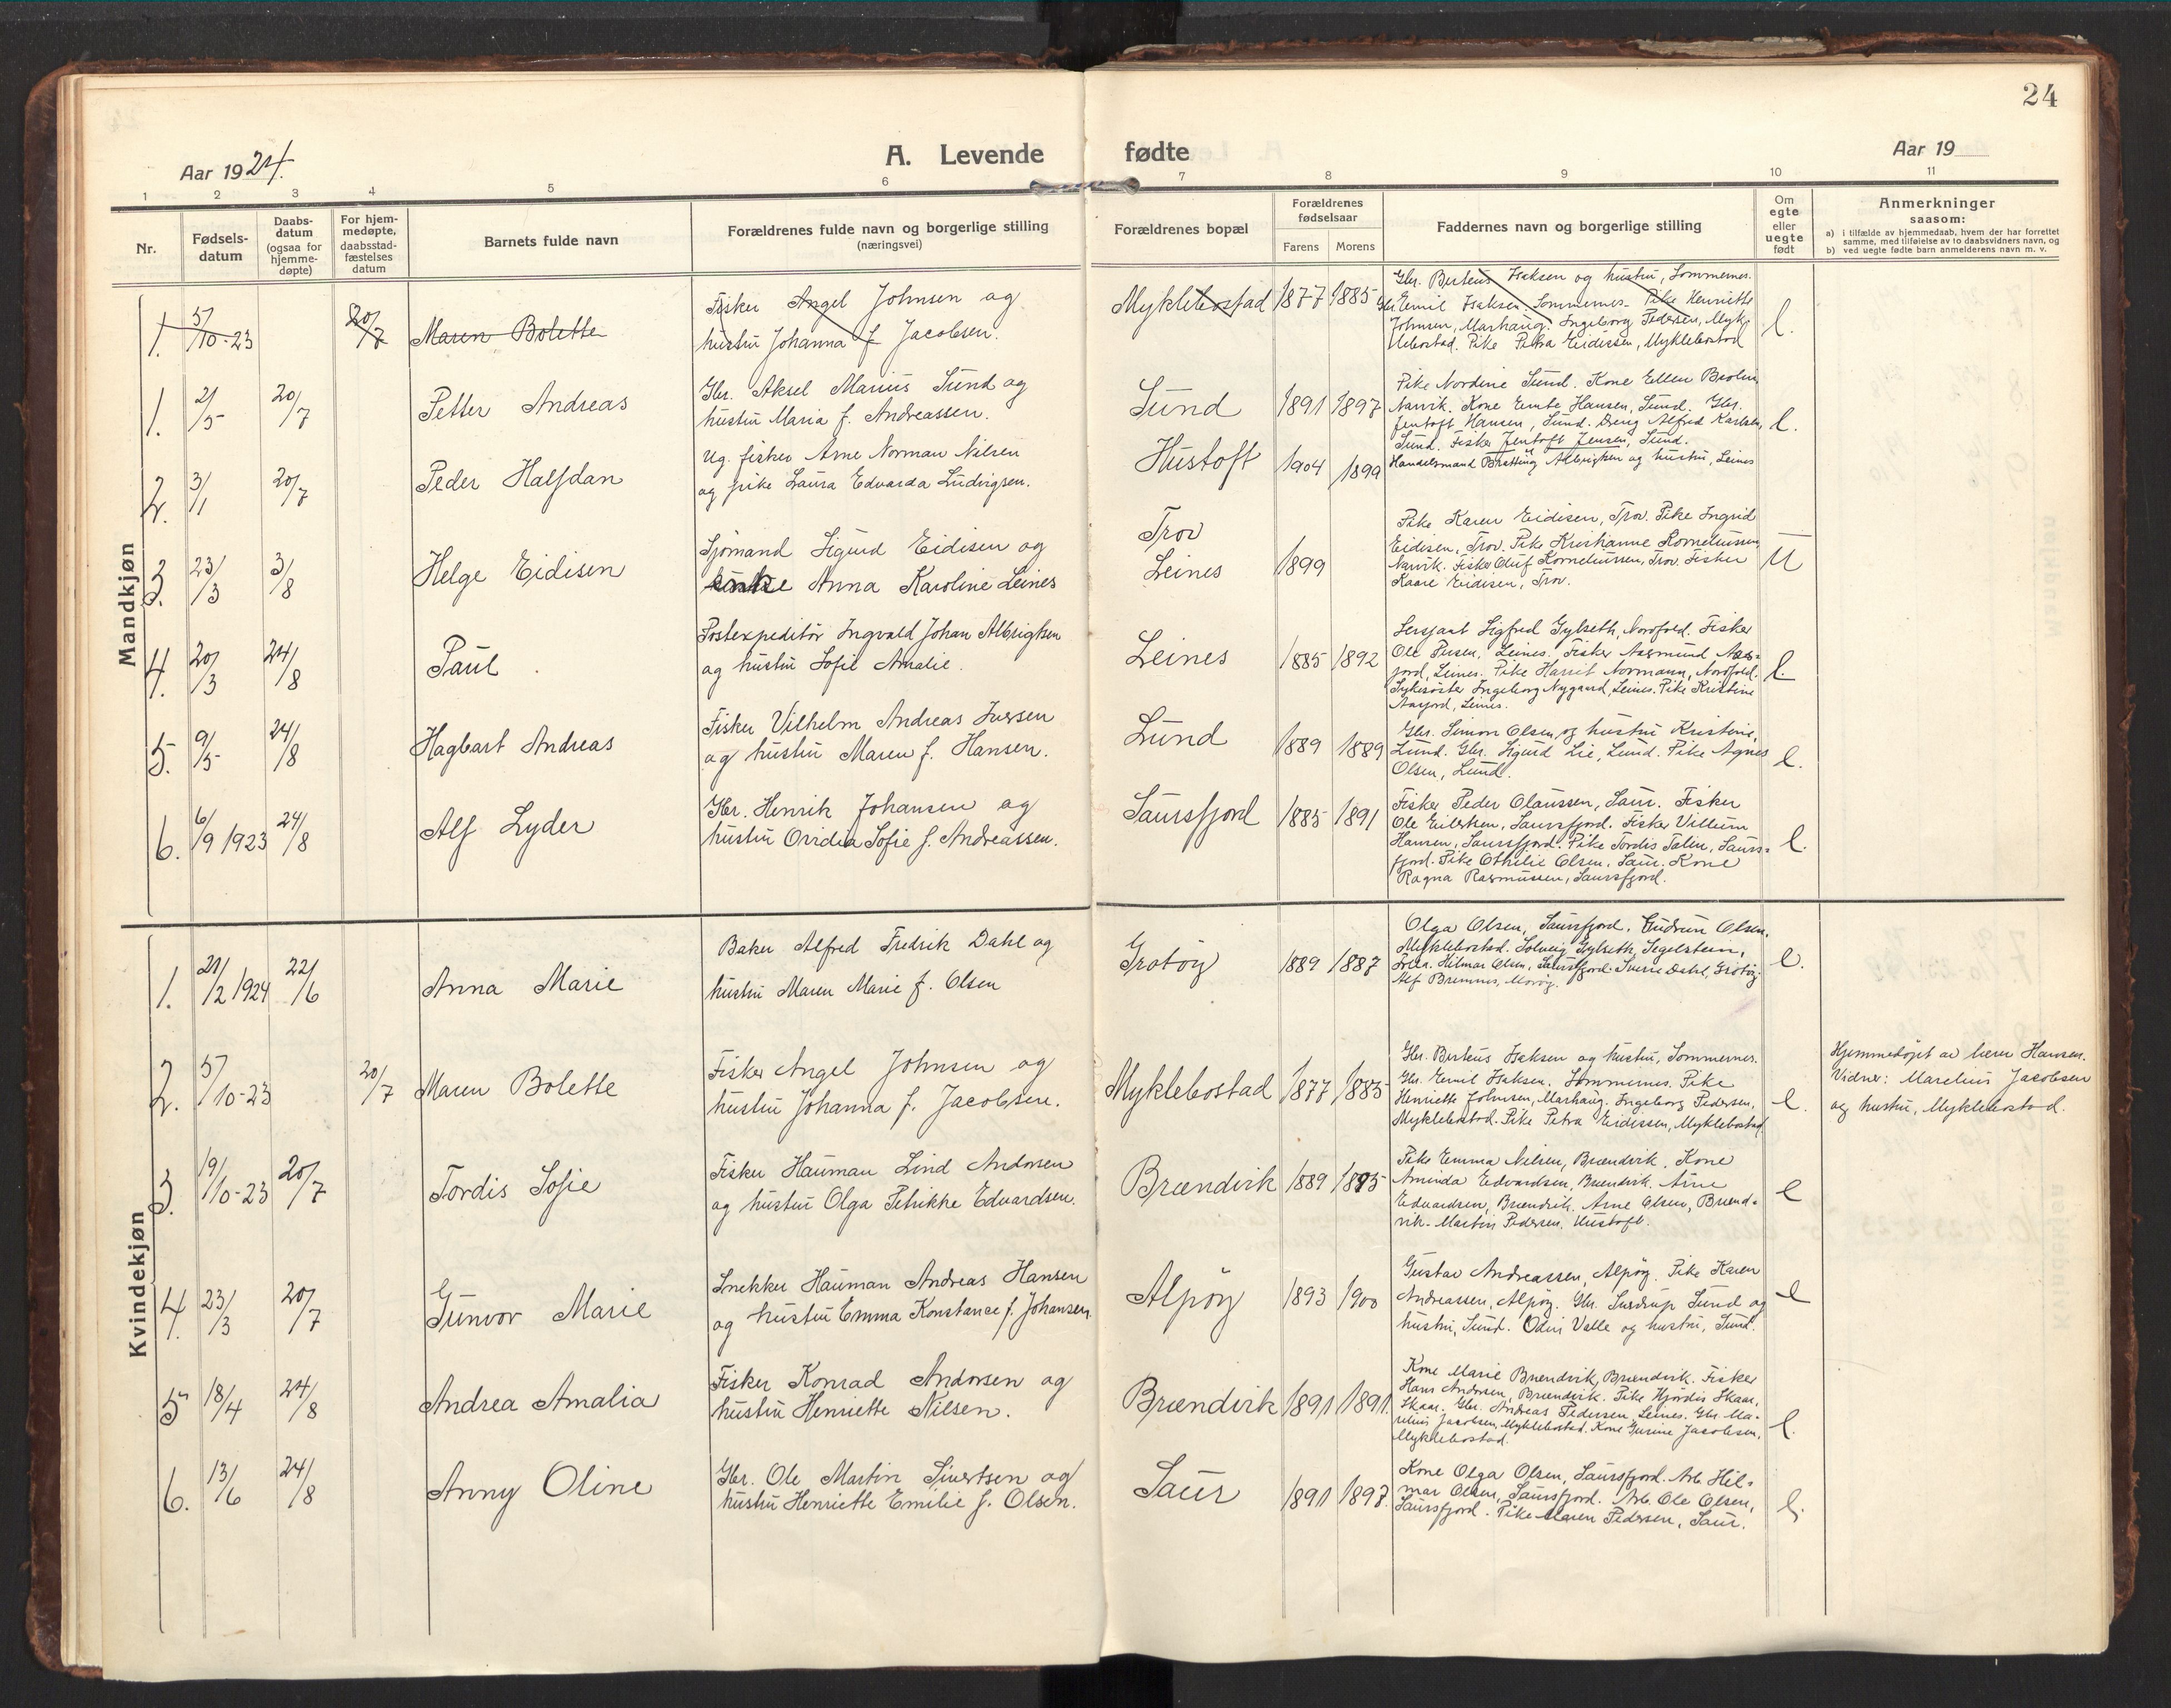 24
Aar 1924.
A. Levende fødte
Aar 19
1 2 3 4 5 6 7 8 9 10 11
Nr.
Fødsels-
datum
Daabs-
datum
(ogsaa for
hjemme-
døpte)
For hjem-
medøpte,
daabsstad-
fæstelses
datum
Barnets fulde navn
Forældrenes fulde navn og borgerlige stilling
(næringsvei)
Forældrenes bopæl
Forældrenes
fødselsaar
Farens Morens
Faddernes navn og borgerlige stilling
Om
egte
eller
uegte
født
Anmerkninger
saasom:
a) i tilfælde av hjemmedaab, hvem der har forrettet
samme, med tilføielse av to daabsvidners navn, og
b) ved uegte fødte barn anmelderens navn m. v.
Mandkjøn
1. 5/10-23 20/7 Maren Bolette
Fisker Angel Johnsen og
hustru Johanna f. Jacobsen.
Myklebostad 1877 1885
Gbr. Berteus Isaksen og hustru, Sommernes.
Gbr. Emil Isaksen. Sommernes. Pike Henriette
Johnsen, Marhaug. Ingeborg Pedersen, Myk-
lebostad. Pike Petra Eidissen, Myklebostad
e.
1. 2/5 20/7 Petter Andreas
Gbr. Aksel Marius Sund og
hustru Maria f. Andreassen.
Sund 1891 1897
Pike Nordine Sund. Kone Ellen
Narvik. Kone Hansen, Sund. Gbr.
Jentoft Hansen, Sund. Dreng Alfred Karlsen,
Sund. Fisker Jentoft Jensen, Sund.
e.
2. 3/1 20/7 Peder Halfdan
Ug. fisker Arne Norman Nilsen
og pike Laura Edvarda Ludvigsen.
Hustoft 1904 1899
Handelsmand Albrigtsen og hustru, Leines
3. 23/3 3/8 Helge Eidisen
Sjömand Sigurd Eidisen og
enke Anna Karoline Leines
Trov
Leines 1899
Pike Karen Eidisen, Trov. Pike Ingrid
Eidisen, Trov. Pike Kristianne Korneliussen,
Narvik. Fisker Oluf Korneliussen, Trov. Fisker
Kaare Eidisen, Trov.
U
4. 20/3 24/8 Paul
Postexpeditör Ingvald Johan Albrigtsen
og hustru Sofie Amalie.
Leines 1885 1892
Sersjant Sigfred Gylseth, Nordfold. Fisker
Ole Persen, Leines. Fisker Aasmund Aas-
jord, Leines. Pike Harriet Normann, Nordfold.
Sykesöster Ingeborg Nygaard, Leines. Pike Kristine
Aasjord, Leines.
e.
5. 9/5 24/8 Hagbart Andreas
Fisker Vilhelm Andreas Iversen
og hustru Maren f. Hansen.
Lund 1889 1889
Gbr. Simon Olsen og hustru Kristine,
Lund. Gbr. Sigurd Lie, Lund. Pike Agnes
Olsen, Lund.
e.
6. 6/9 1923 24/8 Alf Lyder
Gbr. Henrik Johansen og
hustru Ovidia Sofie f. Andreassen.
Saursfjord 1885 1891
Fisker Peder Olaussen, Saur. Fisker
Ole Eilertsen, Saursfjord. Fisker Villum
Hansen, Saursfjord. Pike Tordis Talin, Saurs-
fjord. Pike Othilie Olsen, Saur. Kone
Ragna Rasmussen, Saursfjord.
e.
Kvindekjøn
1. 21/2 1924 22/6 Anna Marie
Baker Alfred Fredrik Dahl og
hustru Maren Marie f. Olsen
Grotöy 1889 1887
Olga Olsen, Saursfjord. Gudrun Olsen,
Myklebostad. Solveig Gylseth, Segelstein,
Hilmar Olsen, Saursfjord. Sverre Dahl, Grotöy.
Alf Bremnes,
e.
2. 5/10-23 20/7 Maren Bolette
Fisker Angel Johnsen og
hustru Johanna f. Jacobsen.
Myklebostad 1877 1885
Gbr. Berteus Isaksen og hustru, Sommernes.
Gbr. Emil Isaksen. Sommernes. Pike
Henriette Johnsen, Marhaug. Ingeborg Pedersen,
Myklebostad. Pike Petra Eidissen, Myklebostad
e.
Hjemmedöpt av lærer Hansen.
Vidner: Marelius Jacobsen
og hustru, Myklebostad.
3. 19/10-23 20/7 Tordis Sofie
Fisker Hauman Lind Andorsen
og hustru Olga Petrikke Edvardsen.
Brændvik 1889 1895
Pike Emma Nilsen, Brændvik. Kone
Aminda Edvardsen, Brændvik. Arne
Edvardsen, Brændvik. Arne Olsen, Brænd-
vik. Martin Pedersen, Hustoft.
e
4. 23/3 20/7 Gunvor Marie
Snekker Hauman Andreas Hansen
og hustru Emma Konstanse f. Johansen.
Alpöy 1893 1900
Gustav Andreassen, Alpöy. Pike Karen
Andreassen, Alpöy. Gbr. Sund og
hustru, Sund. Odin Valle og hustru, Sund.
e
5 18/4 24/8 Andrea Amalia
Fisker Konrad Andorsen og
hustru Henriette Nilsen.
Brændvik 1891 1891.
Kone Marie Brændvik, Brændvik. Fisker
Hans Andorsen, Brændvik. Pike Hjördis Skaar,
Skaar. Gbr. Andreas Pedersen, Leines. Gbr. Ma-
relius Jacobsen, Myklebostad. Kone Gurine Jacobsen,
Myklebostad.
e.
6. 13/6 24/8 Anny Oline
Gbr. Ole Martin Sivertsen og
hustru Henriette Emilie f. Olsen.
Saur 1891 1897.
Kone Olga Olsen, Saursfjord. Arb. Hil-
mar Olsen, Saursfjord. Arb. Ole Olsen,
Saursfjord. Pike Maren Pedersen, Saur.
e.